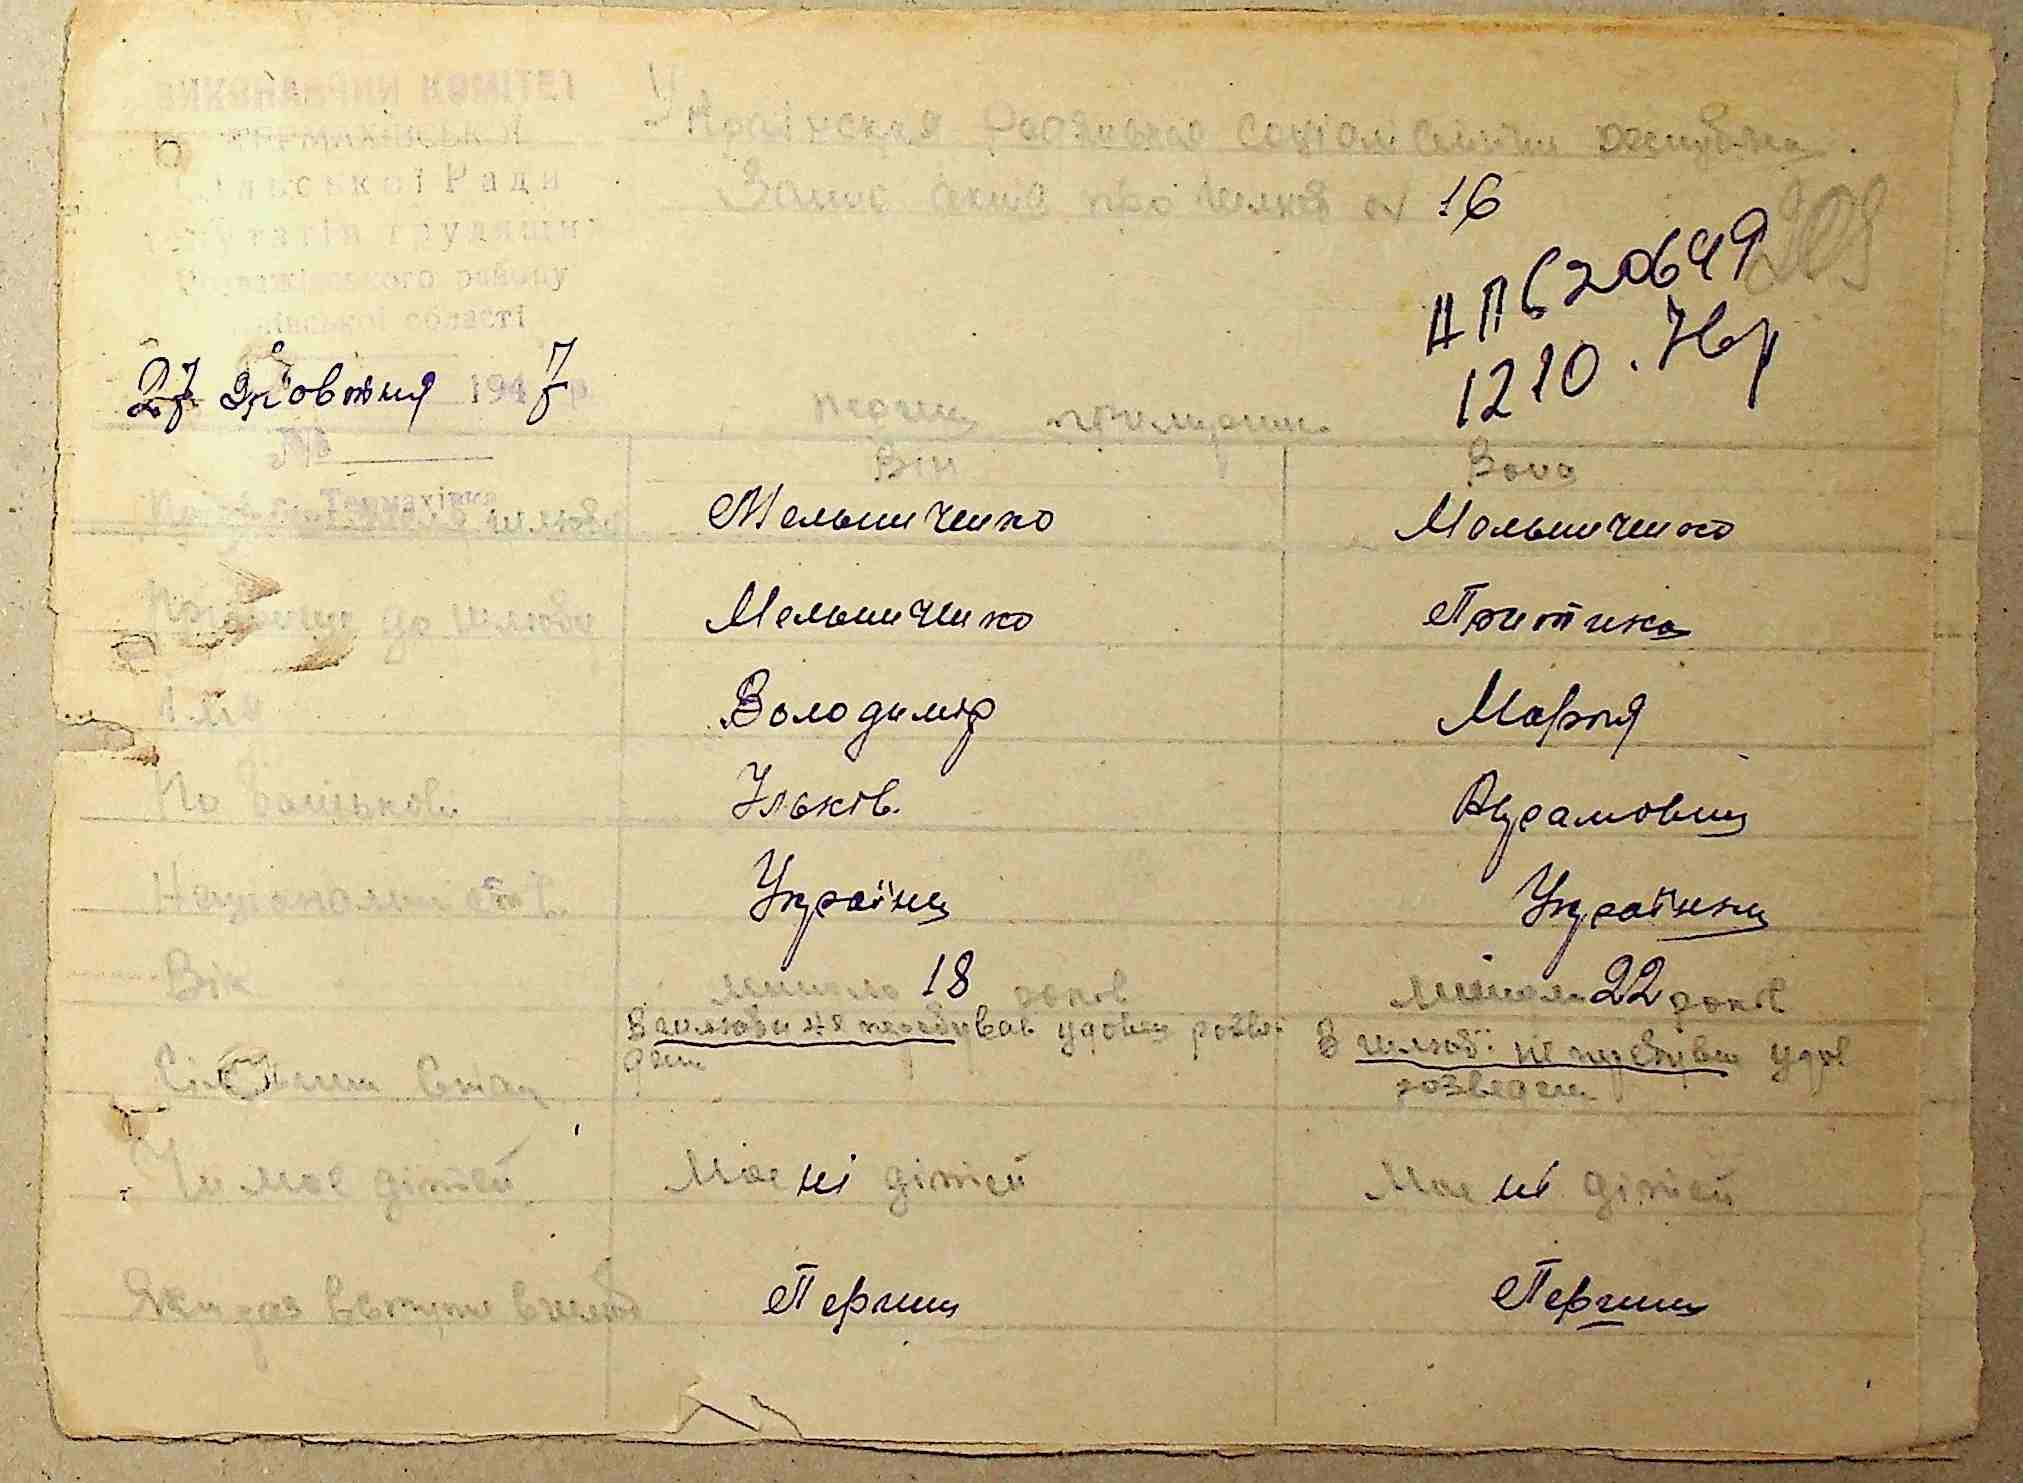 ВИКОНАВЧИЙ КОМІТЕТ
ТЕРМАХІВСЬКОЇ
Сільської Ради
депутатів трудящих
Іванківського району
Київської області
27 Жовтня 1947 р.
№
с. Термахівка
Українская Радянская Соціалістични республика.
Запис актів про шлюб № 16
209
ІІ ПБ 20649
1210. 76р
перший примирник
Він Вона
шлюбу Мельниченко Мельниченко
Прізвище до шлюбу Мельниченко Притика
Імя Володимір Марія
По Батькові Ільків. Аврамовна
Національність Україниц Українка
Вік минуло 18 років минуло 22 років
Сімейний Стан В шлюбі не перебував удовец розве В шлюбі не перебува удов
ден розведен
Чи має дітей Має ні дітей Має ні дітей
Який раз вступає в шлюб Перший Перший